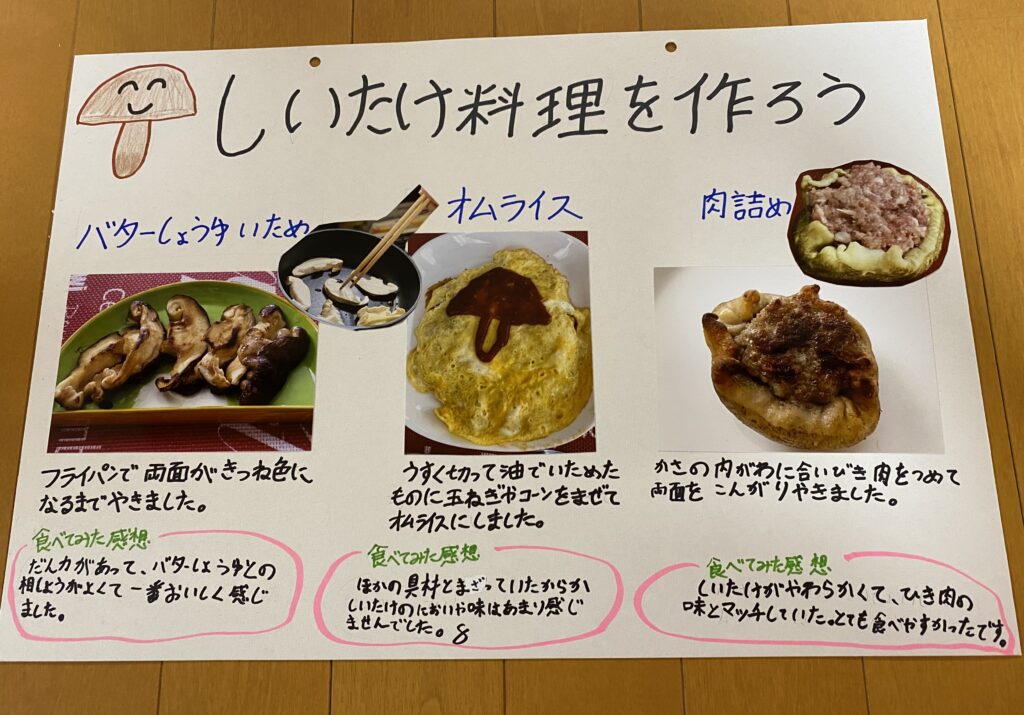 しいたけ料理を作ろう
バターしょうゆいため
フライパンで両面がきつね色に
なるまでやきました。
食べてみた感想
だん力があって、バターしょうゆとの
相しょうがよくて一番おいしく感じ
ました。
オムライス
うすく切って油でいためた
ものに玉ねぎやコーンをまぜて
オムライスにしました。
食べてみた感想
ほかの具材とまざっていたからか
しいたけのにおいや味はあまり感じ
ませんでした。8
肉詰め
かさの内がわに合いびき肉をつめて
両面をこんがりやきました。
食べてみた感想
しいたけがやわらかくて、ひき肉の
味とマッチしていた。とても食べやすかったです。